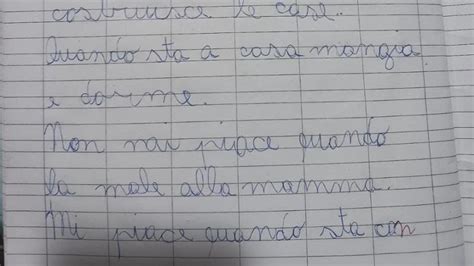 costruisce le case.
Quando sta a casa mangia
e dorme.
Non mi piace quando
fa male alla mamma.
Mi piace quando sta con